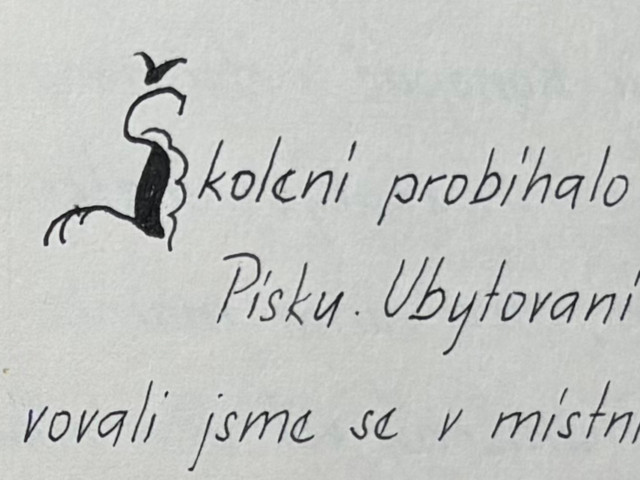 Školení probíhalo
Písku. Ubytovaní
vovali jsme se v místní